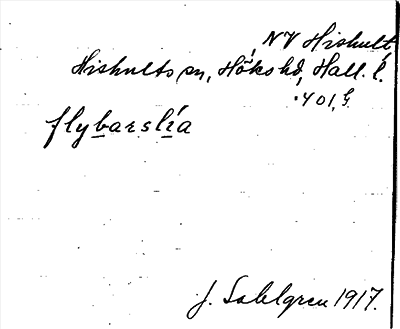 NV Hishult
Hishults sn, Höks hd, Hall. l.
401, G.
flybarslía
J. Sahlgren 1917.